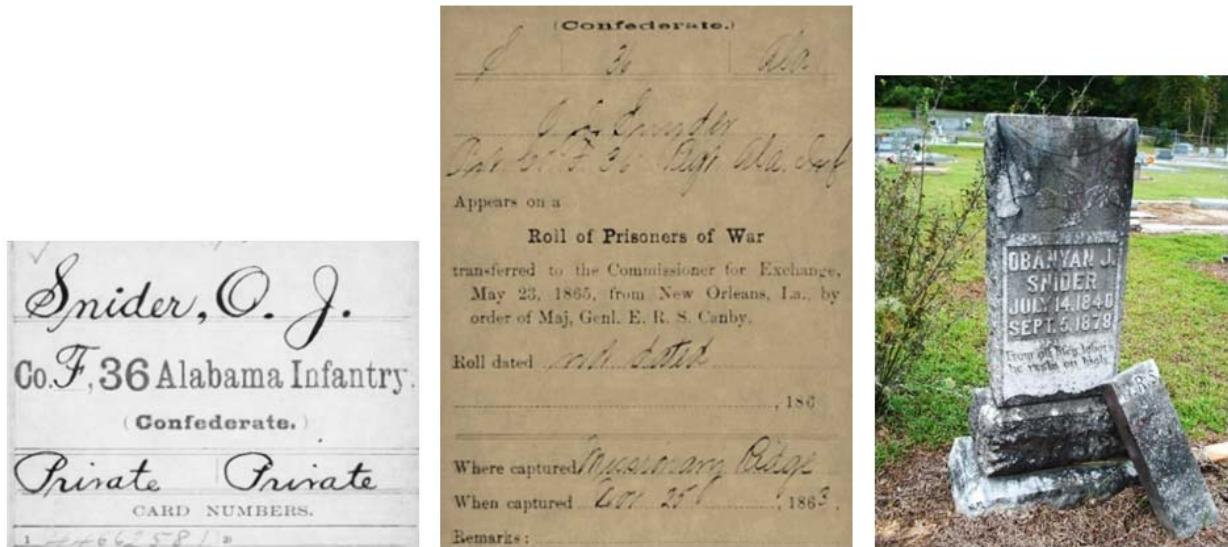 Snider, O. J.
Co. F, 36 Alabama Infantry.
(Confederate.)
Private | Private
CARD NUMBERS.
1 44662581 2
(Confederate.)
36 Ala
Co. F. 36 Regt Ala. Inf
Appears on a
Roll of Prisoners of War
transferred to the Commissioner for Exchange,
May 23, 1865, from New Orleans, La., by
order of Maj. Genl. E. R. S. Canby.
Roll dated not dated
, 186
Where captured Missionary Ridge
When captured Nov 25, 1863.
Remarks:
OBANYAN J.
SNIDER
JULY 14, 1840
SEPT. 5, 1878
From all his labors
he rests on high.